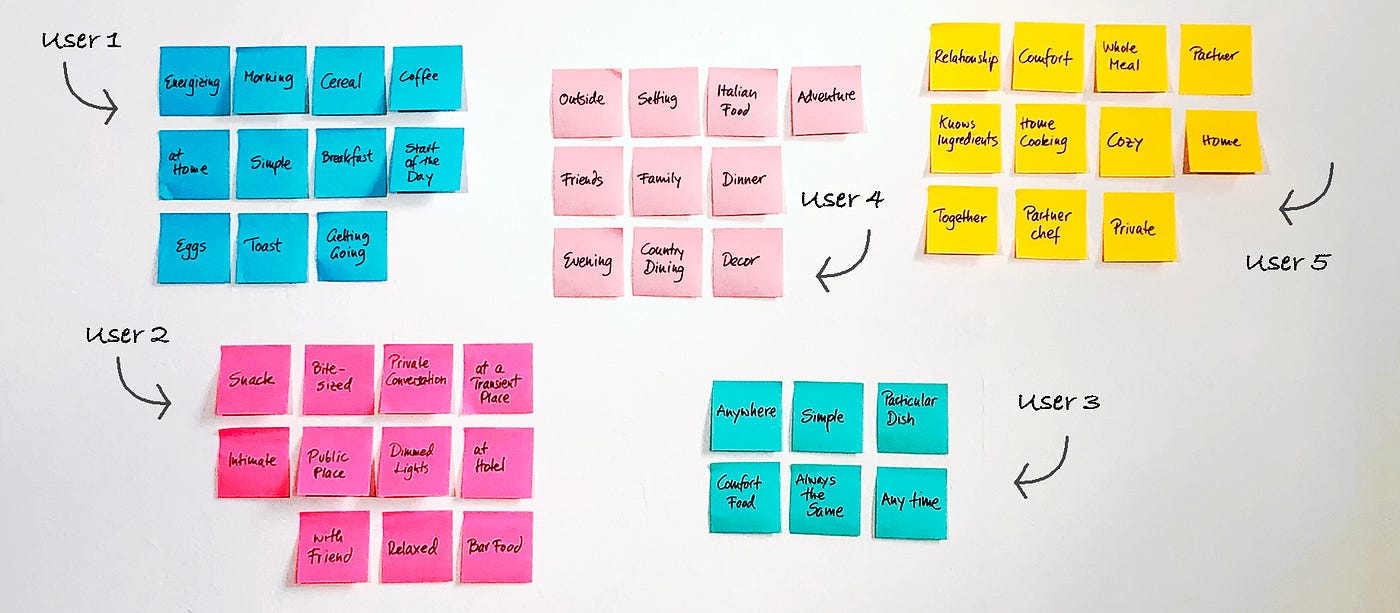 User 1
Energizing
Morning
Cereal
Coffee
at
Home
Simple
Breakfast
Start
of the
Day
Eggs
Toast
Getting
Going
User 4
Outside
Setting
Italian
Food
Adventure
Friends
Family
Dinner
Evening
Country
Dining
Decor
User 5
Relationship
Comfort
Whole
Meal
Partner
Knows
Ingredients
Home
Cooking
Cozy
Home
Together
Partner
chef
Private
User 2
Snack
Bite-
sized
Private
Conversation
at a
Transient
Place
Intimate
Public
Place
Dimmed
Lights
at
Hotel
with
Friend
Relaxed
Bar Food
User 3
Anywhere
Simple
Particular
Dish
Comfort
Food
Always
the
Same
Any time